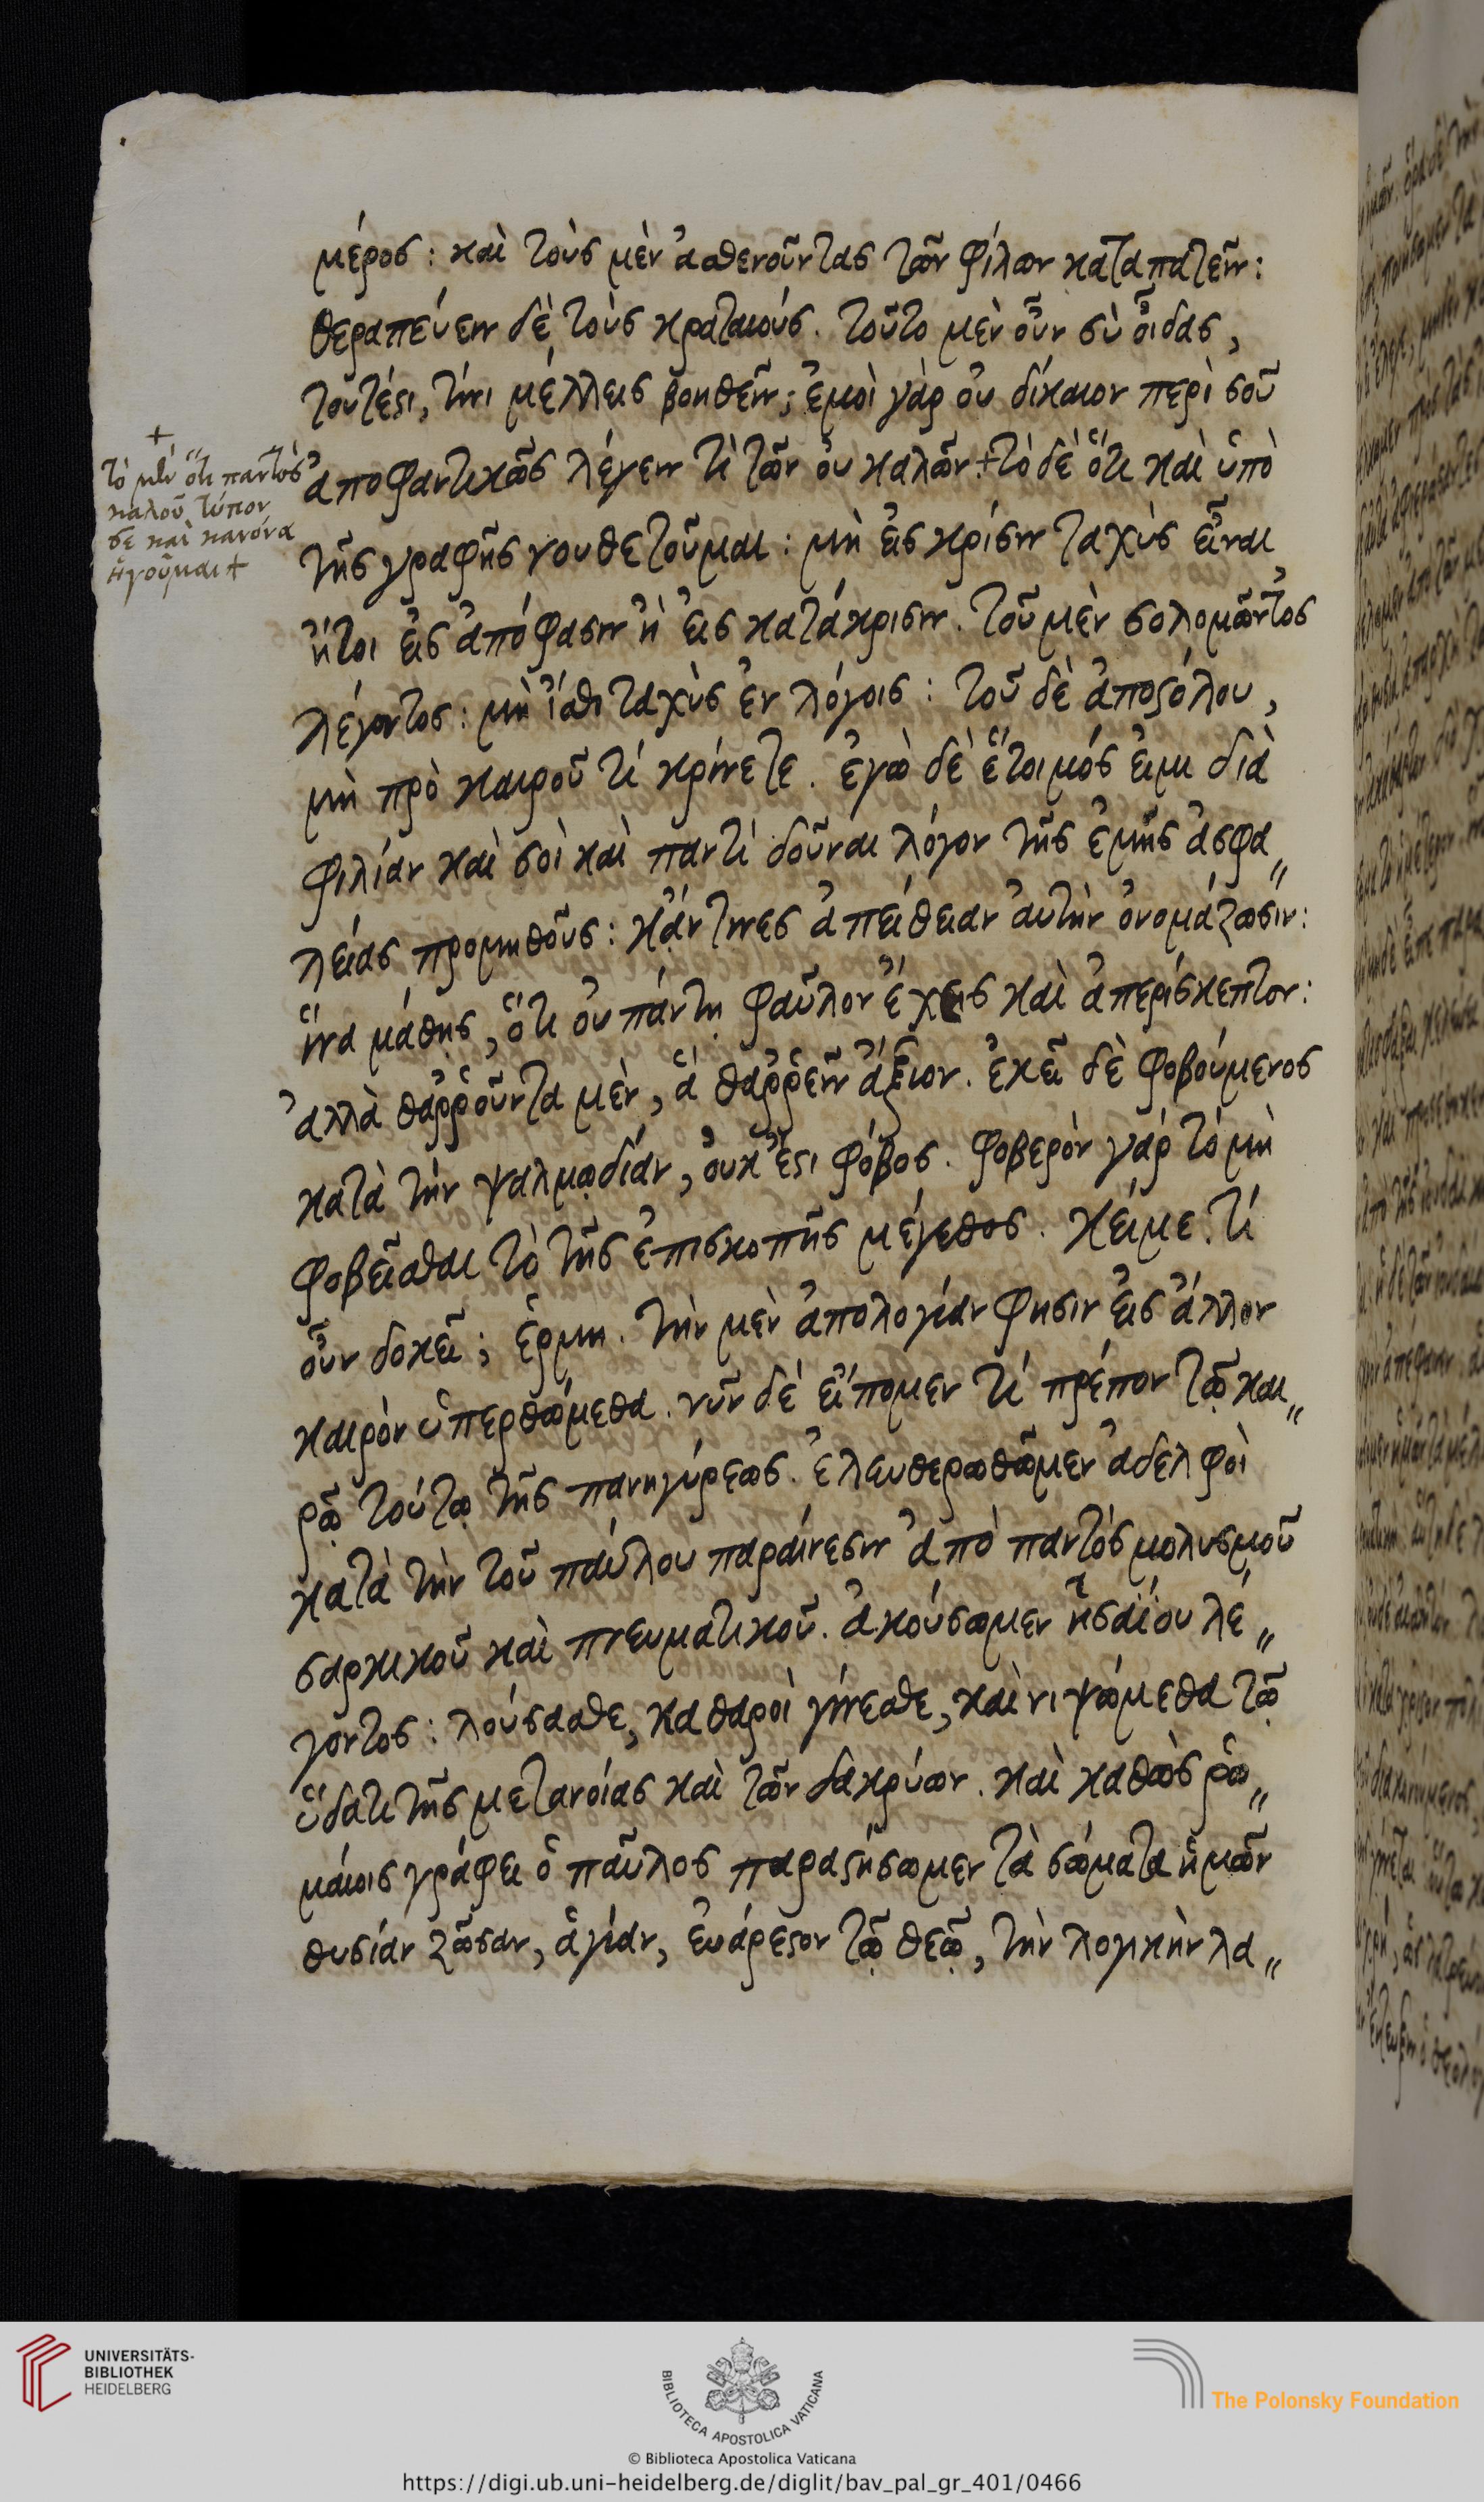 μέρος: καὶ τοὺς μὲν ἀσθενοῦντας τῶν φίλων καταπατεῖν:
θεραπεύειν δὲ τοὺς κραταιούς. τοῦτο μὲν οὖν σὺ οἶδας,
τουτέστι, τίνι μέλλεις βοηθεῖν; ἐμοὶ γὰρ οὐ δίκαιον περὶ σοῦ
ἀποφαντικῶς λέγειν τὶ τῶν οὐ καλῶν + τὸ δὲ ὅτι καὶ ὑπὸ
τῆς γραφῆς νουθετοῦμαι: μὴ εἰς κρίσιν ταχὺς εἶναι
ἤτοι εἰς ἀπόφασιν ἢ εἰς κατάκρισιν. τοῦ μὲν σολομῶντος
λέγοντος: μὴ ἴσθι ταχὺς ἐν λόγοις: τοῦ δὲ ἀποστόλου,
μὴ πρὸ καιροῦ τί κρίνετε. ἐγὼ δὲ ἕτοιμός εἰμι διὰ
φιλίαν καὶ σοὶ καὶ παντὶ δοῦναι λόγον τῆς ἐμῆς ἀσφα„
λείας προμηθοῦς: κἄν τινες ἀπείθειαν αὐτὴν ὀνομάζωσιν:
ἵνα μάθῃς, ὅτι οὐ πάντῃ φαῦλον ἔχεις καὶ ἀπερίσκεπτον:
ἀλλὰ θαῤῥοῦντα μὲν, ἃ θαῤῥεῖν ἄξιον. ἐκεῖ δὲ φοβούμενος
κατὰ τὴν ψαλμῳδίαν, οὐκ ἔστι φόβος. φοβερὸν γάρ τό μὴ
φοβεῖσθαι τὸ τῆς ἐπισκοπῆς μέγεθος. κείμε. τί
οὖν δοκεῖ; ἑρμη. τὴν μὲν ἀπολογίαν φησὶν εἰς ἄλλον
καιρὸν ὑπερθώμεθα. νῦν δὲ εἴπομεν τί πρέπον τῷ και„
ρῷ τούτῳ τῆς πανηγύρεως. ἐλευθερωθῶμεν ἀδελφοὶ
κατὰ τὴν τοῦ παύλου παραίνεσιν ἀπὸ παντὸς μολυσμοῦ
σαρκικοῦ καὶ πνευματικοῦ. ἀκούσωμεν ἡσαΐου λέ„
γοντος: λούσασθε, καθαροὶ γίνεσθε, καὶ νιψώμεθα τῷ
ὕδατι τῆς μετανοίας καὶ τῶν δακρύων. καὶ καθὼς ῥω„
μαίοις γράφει ὁ παῦλος παραστήσωμεν τὰ σώματα ἡμῶν
θυσίαν ζῶσαν, ἁγίαν, εὐάρεστον τῷ θεῷ, τὴν λογικὴν λα„
+
τὸ μὲν ὅτι παντὸς
καλοῦ τύπον
σε καὶ κανόνα
ἡγοῦμαι +
UNIVERSITÄTS-
BIBLIOTHEK
HEIDELBERG
BIBLIOTECA APOSTOLICA VATICANA
The Polonsky Foundation
© Biblioteca Apostolica Vaticana
https://digi.ub.uni-heidelberg.de/diglit/bav_pal_gr_401/0466